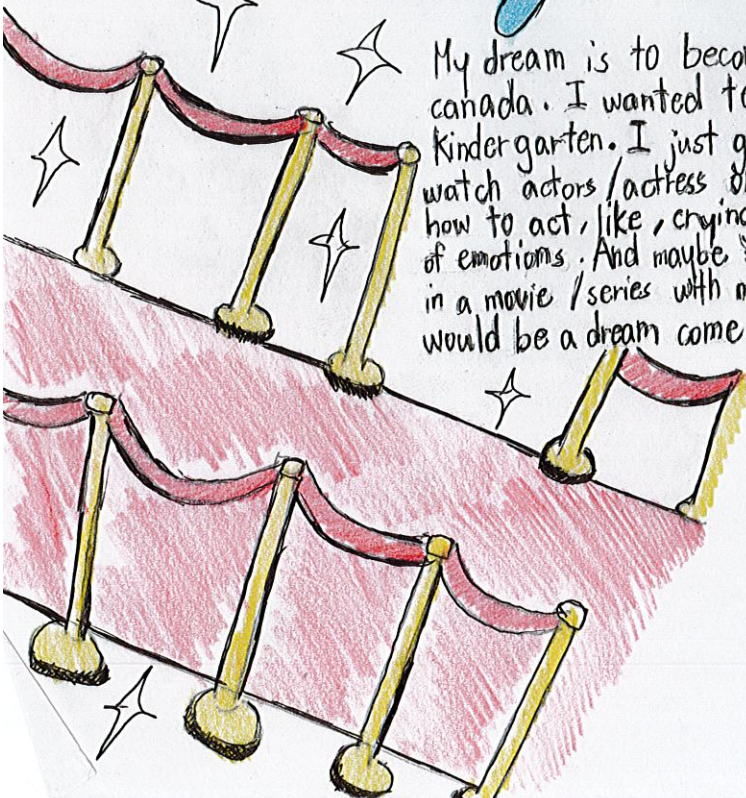 My dream is to beco
canada. I wanted to
Kindergarten. I just g
watch actors/actress o
how to act, like, crying
of emotions. And maybe
in a movie /series with m
would be a dream come